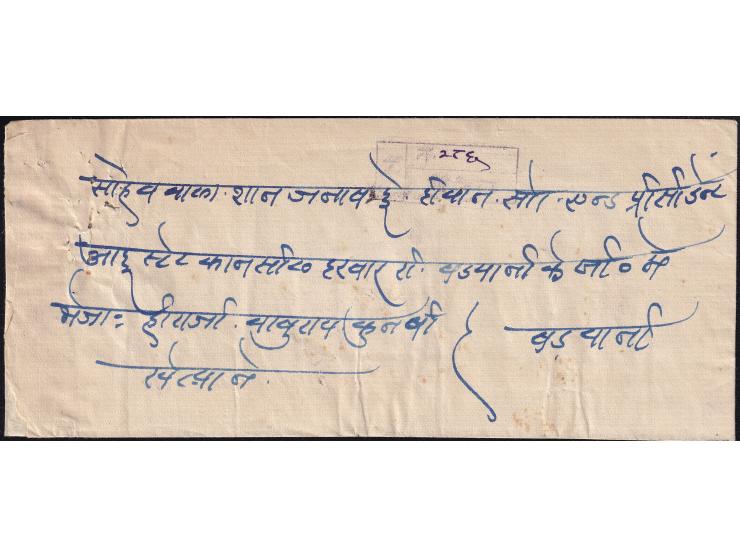 २८६
साहेब वाला शान जनाब दीवान सा. एन्ड प्रेसीडेन्ट
आइ स्टेट कानसील दरबार रा. बडवानी के जी० मे
भेजा: हीराजी. बाबुराव कुनबी } बडवानी